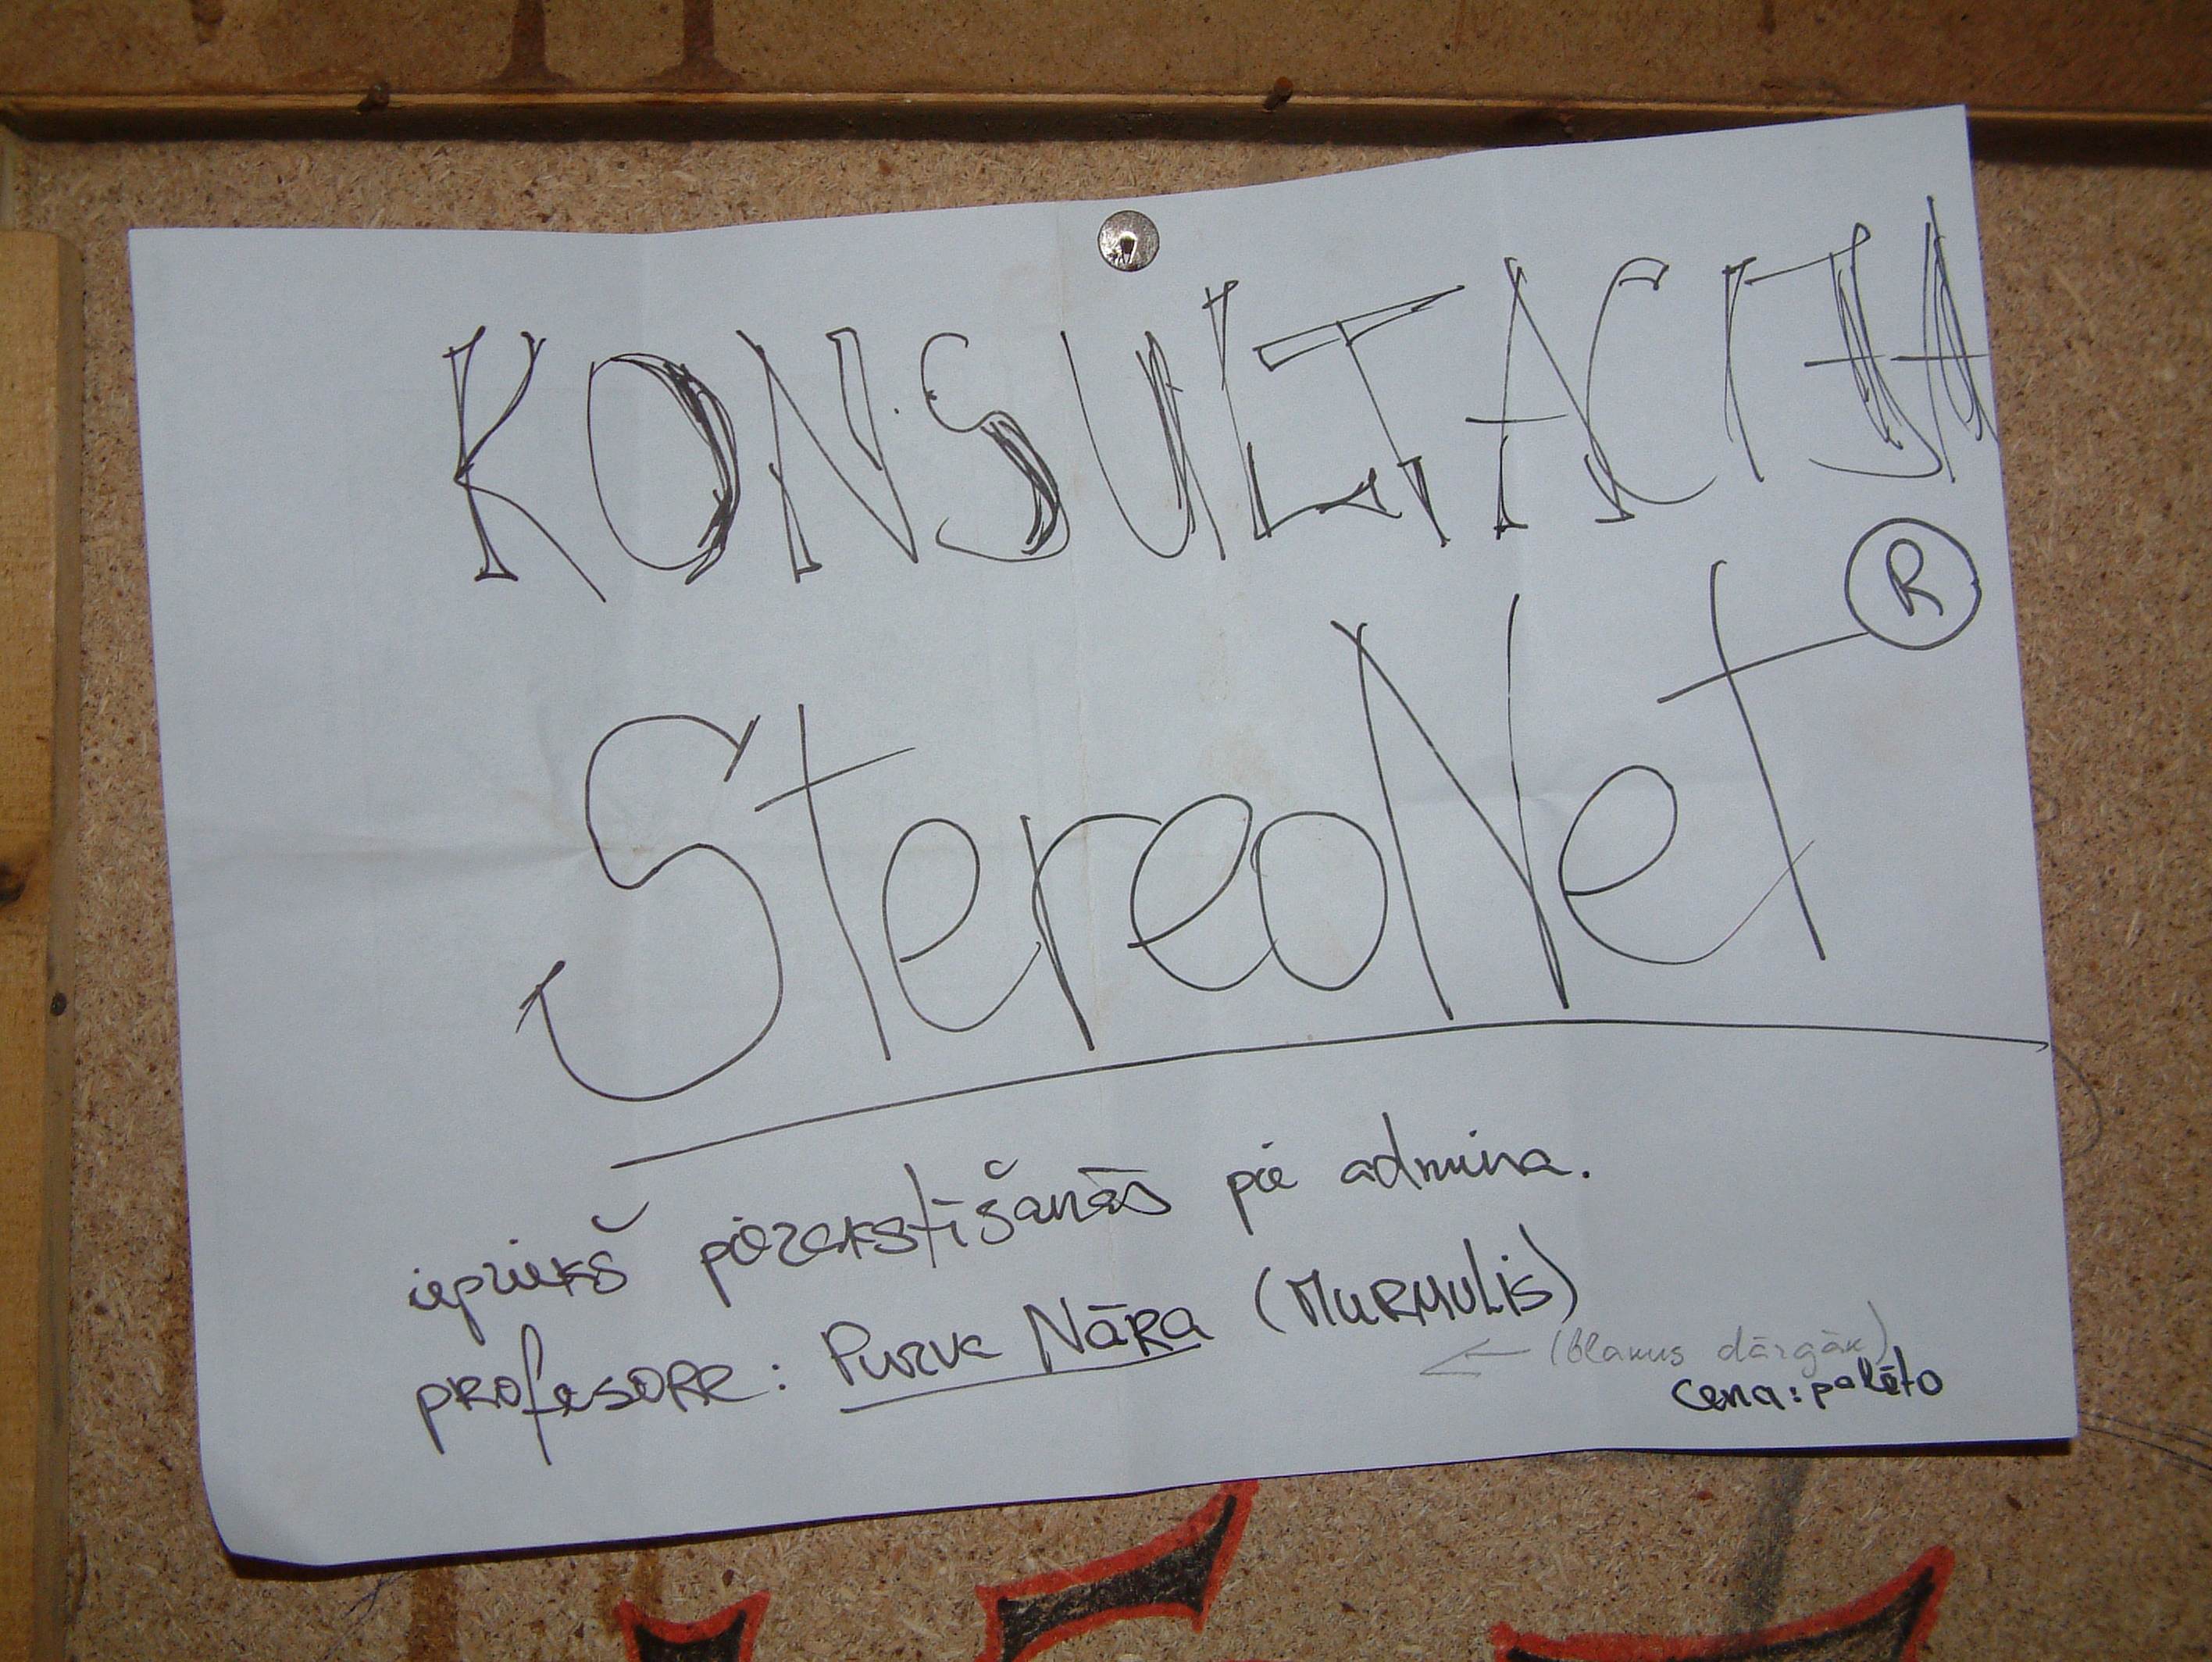 KONSULTACIJA
StereoNet ®
iepriekš pierakstīšanās pie admina.
profesore: Purva Nāra (MURMULIS)
← (blakus dārgāk)
cena: palēto